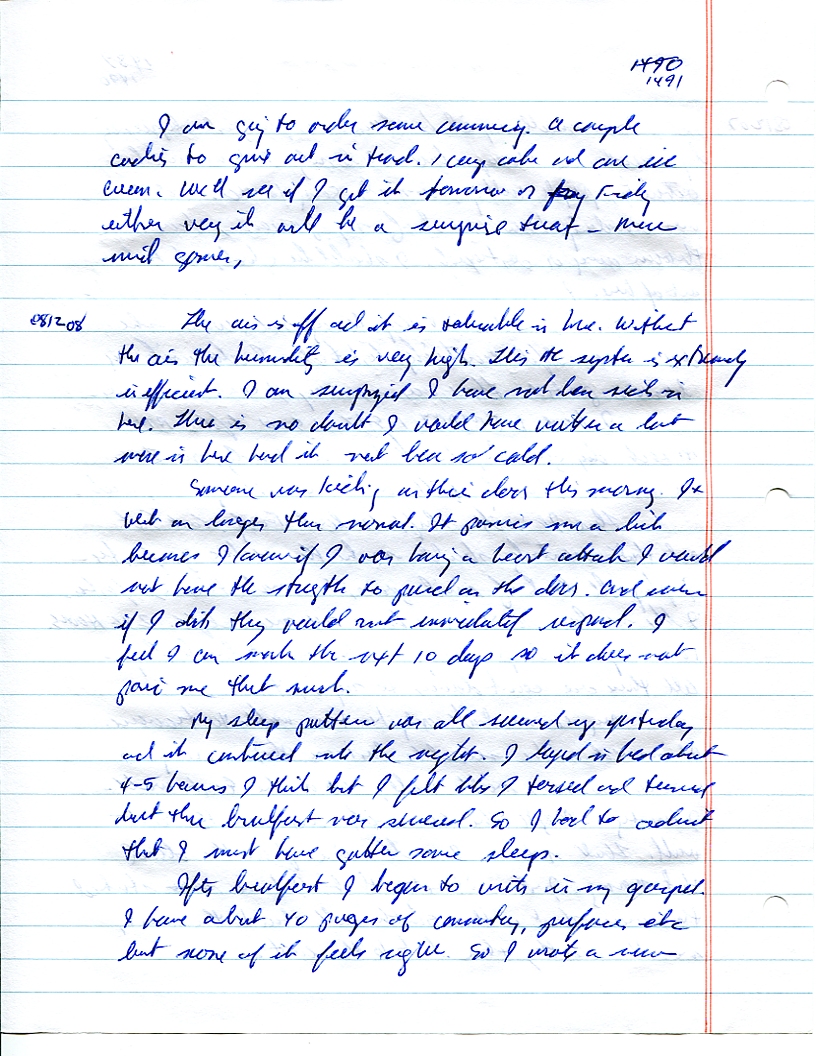 1490
1491
I am going to order some commissary. A couple
candies to give out in trade. 1 cake and one ice
cream. We'll see if I get it tomorrow or Friday
either way it will be a surprise treat - mere
08/12/08 The air is off and it is tolerable in here. Without
the air the humidity is very high. This the system is extremely
inefficient. I am surprized I have not been sick in
here. There is no doubt I would have written a lot
more in here had it not been so cold.
Someone was kicking on their door this morning. It
went on longer than normal. It panics me a little
because I know if I was having a heart attack I would
not have the strength to pound on the door. And even
if I did they would not immediately respond. I
feel I can make the next 10 days so it does not
panic me that much.
My sleep pattern was all screwed up yesterday
and it continued into the night. I layed in bed about
4-5 hours I think but I felt like I tossed and turned
but then breakfast was served. So I had to admit
that I must have gotten some sleep.
After breakfast I began to write in my gospel.
I have about 40 pages of commentary, prefaces etc
but none of it feels right. So I wrote a new